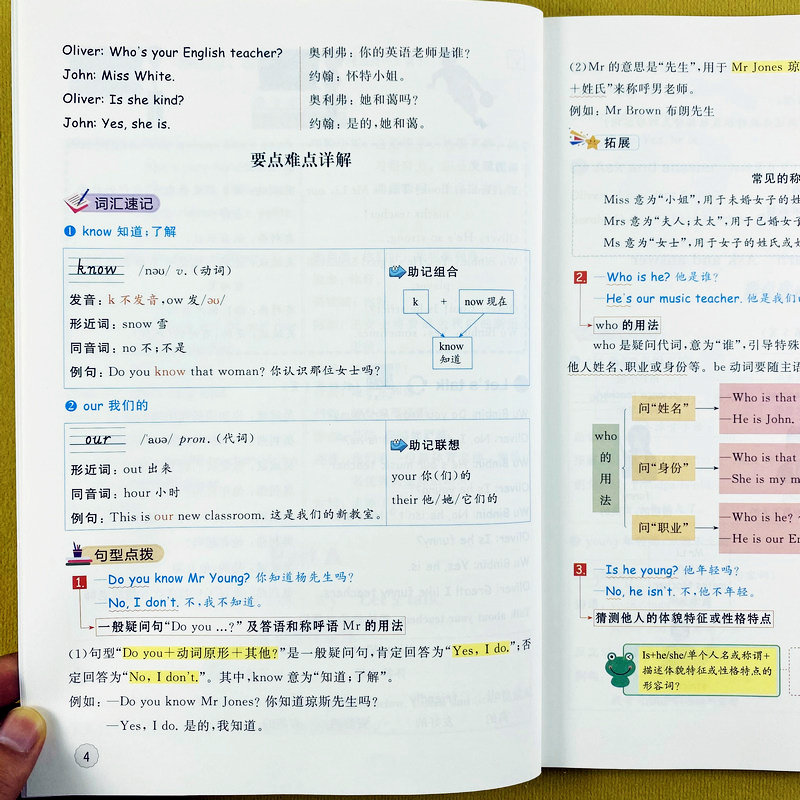 Oliver: Who's your English teacher? 奥利弗：你的英语老师是谁？
John: Miss White. 约翰：怀特小姐。
Oliver: Is she kind? 奥利弗：她和蔼吗？
John: Yes, she is. 约翰：是的，她和蔼。
要点难点详解
词汇速记
1 know 知道；了解
know /nəʊ/ v.（动词）
发音：k 不发音，ow 发/əʊ/
形近词：snow 雪
同音词：no 不；不是
例句：Do you know that woman? 你认识那位女士吗？
助记组合
k + now 现在
know
知道
2 our 我们的
our /aʊə/ pron.（代词）
形近词：out 出来
同音词：hour 小时
例句：This is our new classroom. 这是我们的新教室。
助记联想
your 你(们)的
their 他/她/它们的
句型点拨
1. —Do you know Mr Young? 你知道杨先生吗？
—No, I don't. 不，我不知道。
一般疑问句“Do you …?”及答语和称呼语 Mr 的用法
(1)句型“Do you＋动词原形＋其他?”是一般疑问句，肯定回答为“Yes, I do.”；否
定回答为“No, I don't.”。其中，know 意为“知道；了解”。
例如：—Do you know Mr Jones? 你知道琼斯先生吗？
—Yes, I do. 是的，我知道。
4
(2)Mr 的意思是“先生”，用于 Mr Jones 琼
＋姓氏”来称呼男老师。
例如：Mr Brown 布朗先生
拓展
常见的称
Miss 意为“小姐”，用于未婚女子的姓
Mrs 意为“夫人；太太”，用于已婚女子
Ms 意为“女士”，用于女子的姓氏或姓
2. —Who is he? 他是谁？
—He's our music teacher. 他是我们
who 的用法
who 是疑问代词，意为“谁”，引导特殊
他人姓名、职业或身份等。be 动词要随主语
who
的
用
法
问“姓名”
—Who is that
—He is John.
问“身份”
—Who is that
—She is my m
问“职业”
—Who is he?
—He is our En
3. —Is he young? 他年轻吗？
—No, he isn't. 不，他不年轻。
猜测他人的体貌特征或性格特点
Is+he/she/单个人名或称谓+
描述体貌特征或性格特点的
形容词?